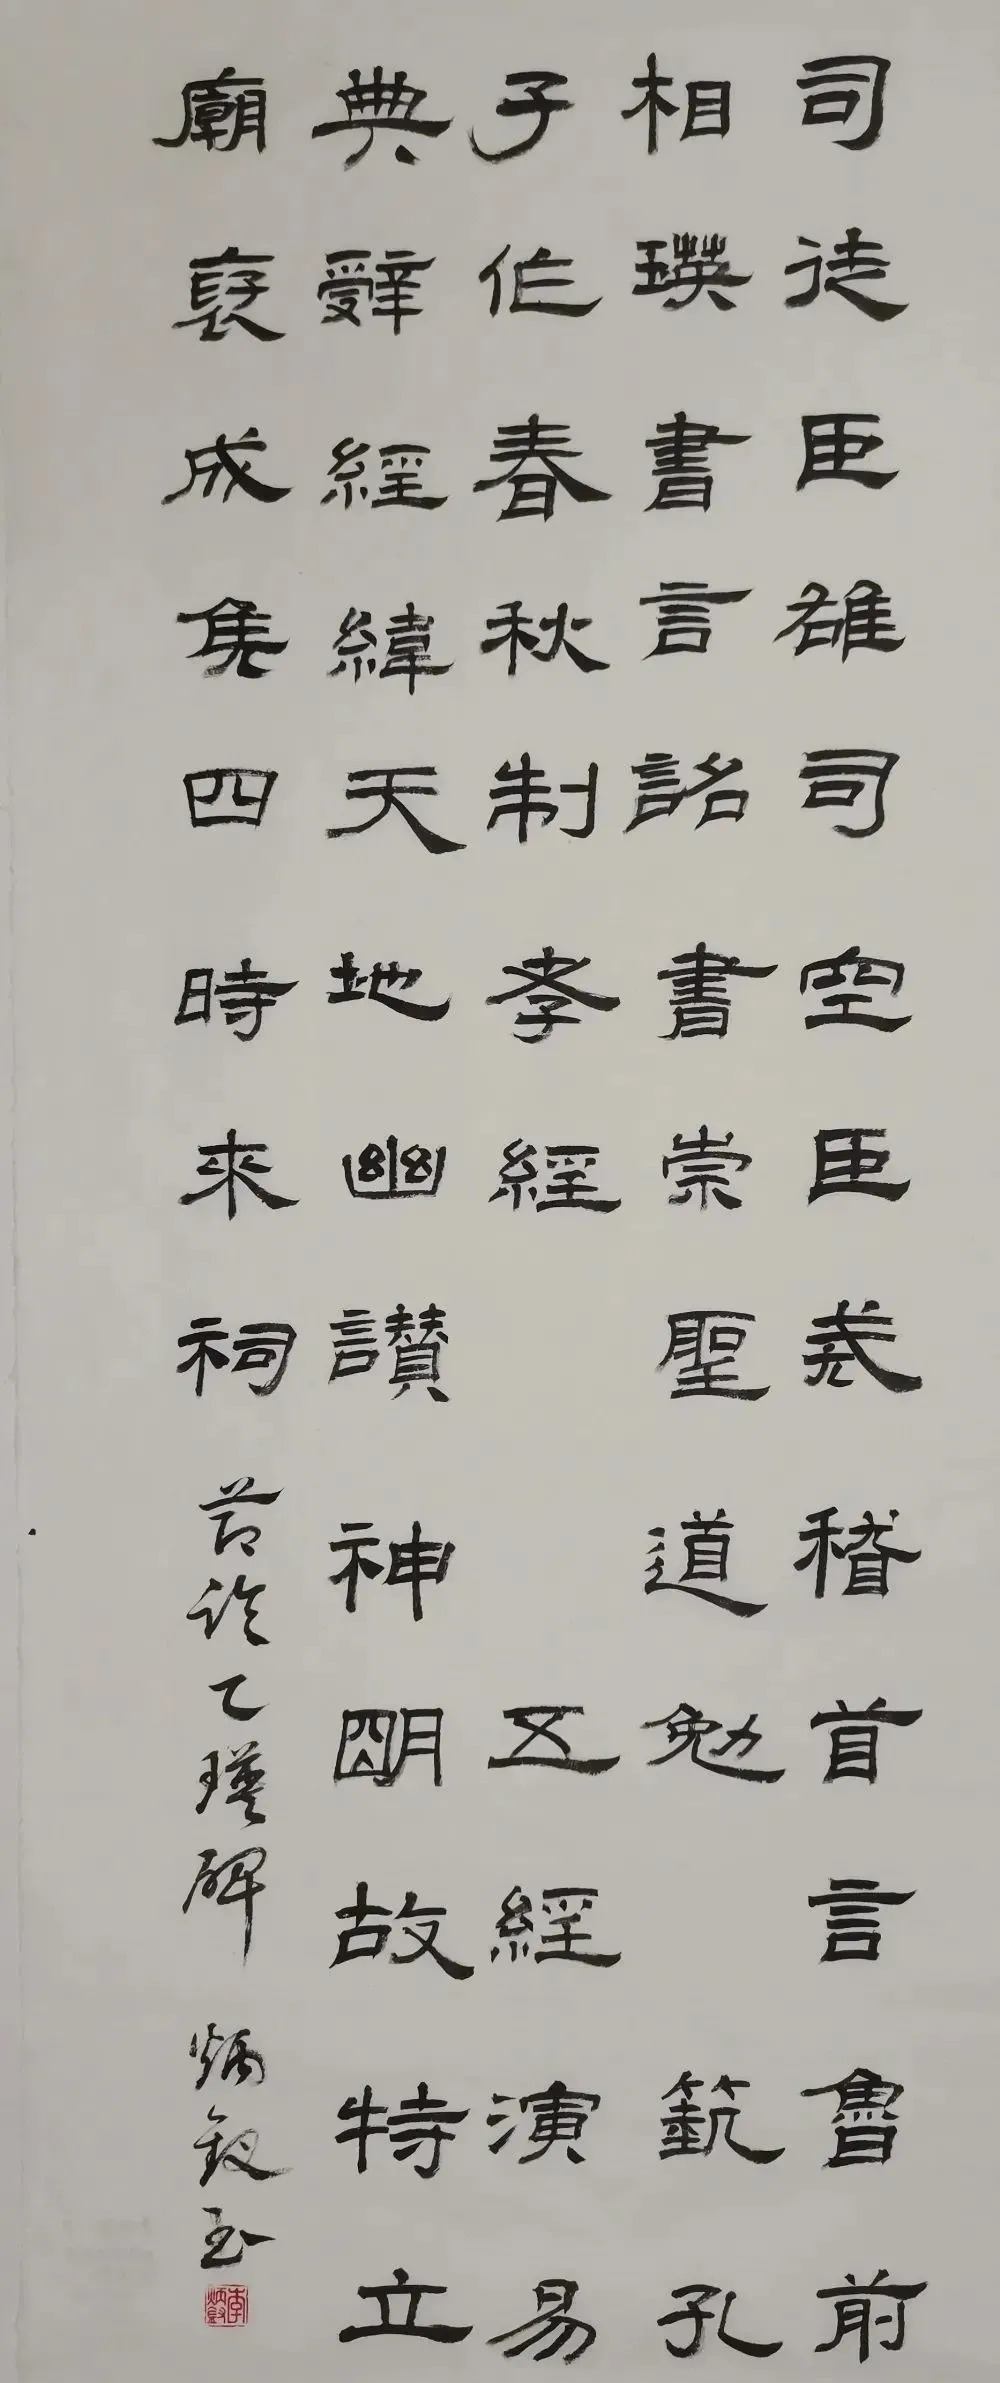 司徒臣雄司空臣戒稽首言魯前
相瑛書言詔書崇聖道勉 藝孔
子作春秋制孝經 五經演易
典辭經緯天地幽讚神明故特立
廟褒成侯四時來祠 节临乙瑛碑 炳